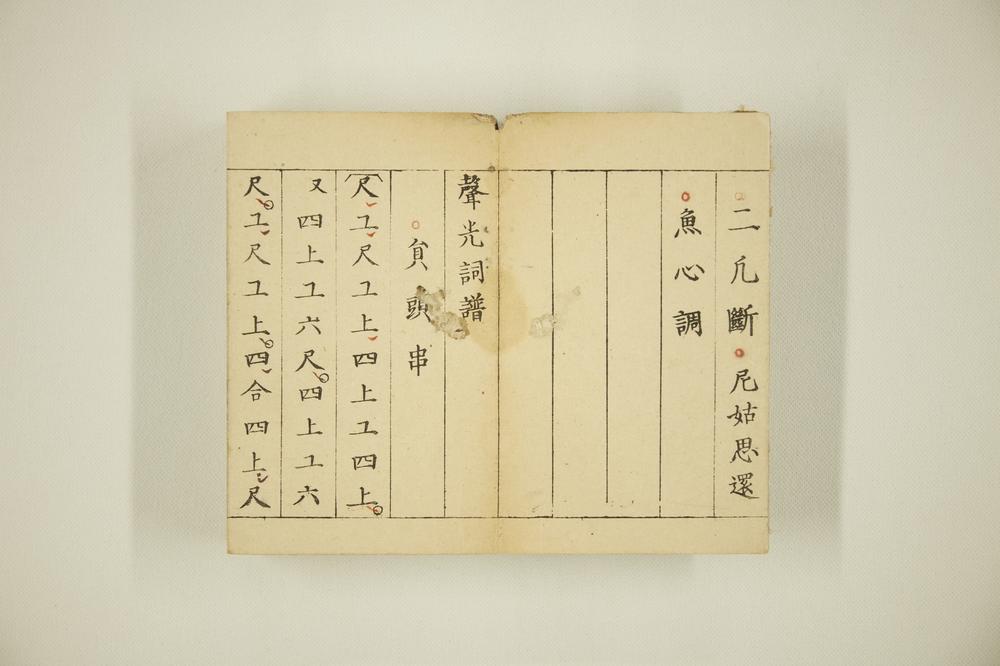 二凡斷 尼姑思還
魚心調
聲光詞譜
貟頭串
尺工尺工上四上工四上
又四上工六尺四上工六
尺工尺工上四合四上尺